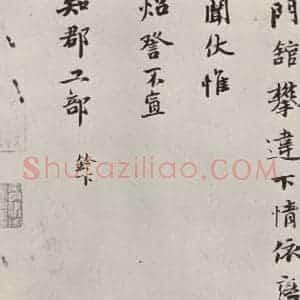 門舘攀違下情依
聞伏惟
炤詧不宣
知郡工部
Shufaziliao.com